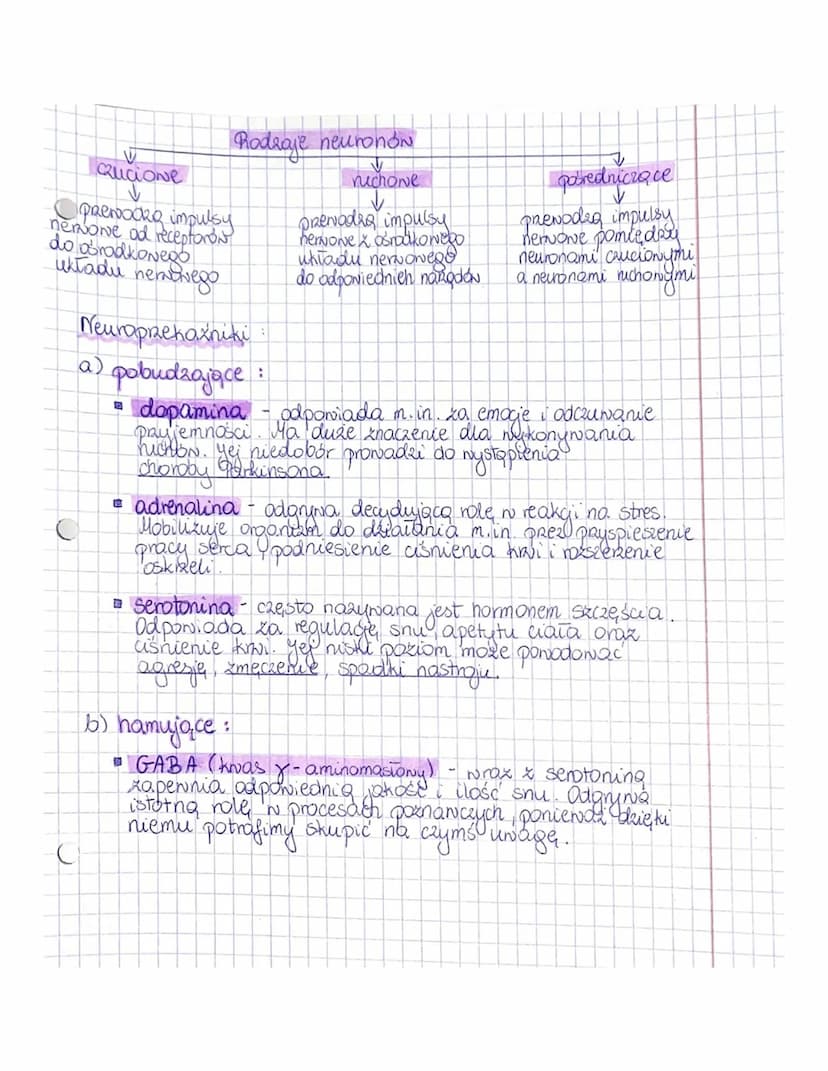 Rodzaje neuronów
czuciowe
ruchowe
pośredniczące
przewodzą impulsy
nerwowe od receptorów
do ośrodkowego
układu nerwowego
przewodzą impulsy
nerwowe z ośrodkowego
układu nerwowego
do odpowiednich narządów
przewodzą impulsy
nerwowe pomiędzy
neuronami czuciowymi
a neuronami ruchowymi
Neuroprzekaźniki :
a) pobudzające :
dopamina - odpowiada m.in. za emocje i odczuwanie
przyjemności. Ma duże znaczenie dla wykonywania
ruchów. Jej niedobór prowadzi do wystąpienia
choroby Parkinsona.
adrenalina - odgrywa decydującą rolę w reakcji na stres.
Mobilizuje organizm do działania m.in. przez przyspieszenie
pracy serca, podniesienie ciśnienia krwi i rozszerzenie
oskrzeli.
serotonina - często nazywana jest hormonem szczęścia.
Odpowiada za regulację snu, apetytu ciała oraz
ciśnienie krwi. Jej niski poziom może powodować
agresję, zmęczenie, spadki nastroju.
b) hamujące :
GABA (kwas γ-aminomasłowy) - wraz z serotoniną
zapewnia odpowiednią jakość i ilość snu. Odgrywa
istotną rolę w procesach poznawczych, ponieważ dzięki
niemu potrafimy skupić na czymś uwagę.